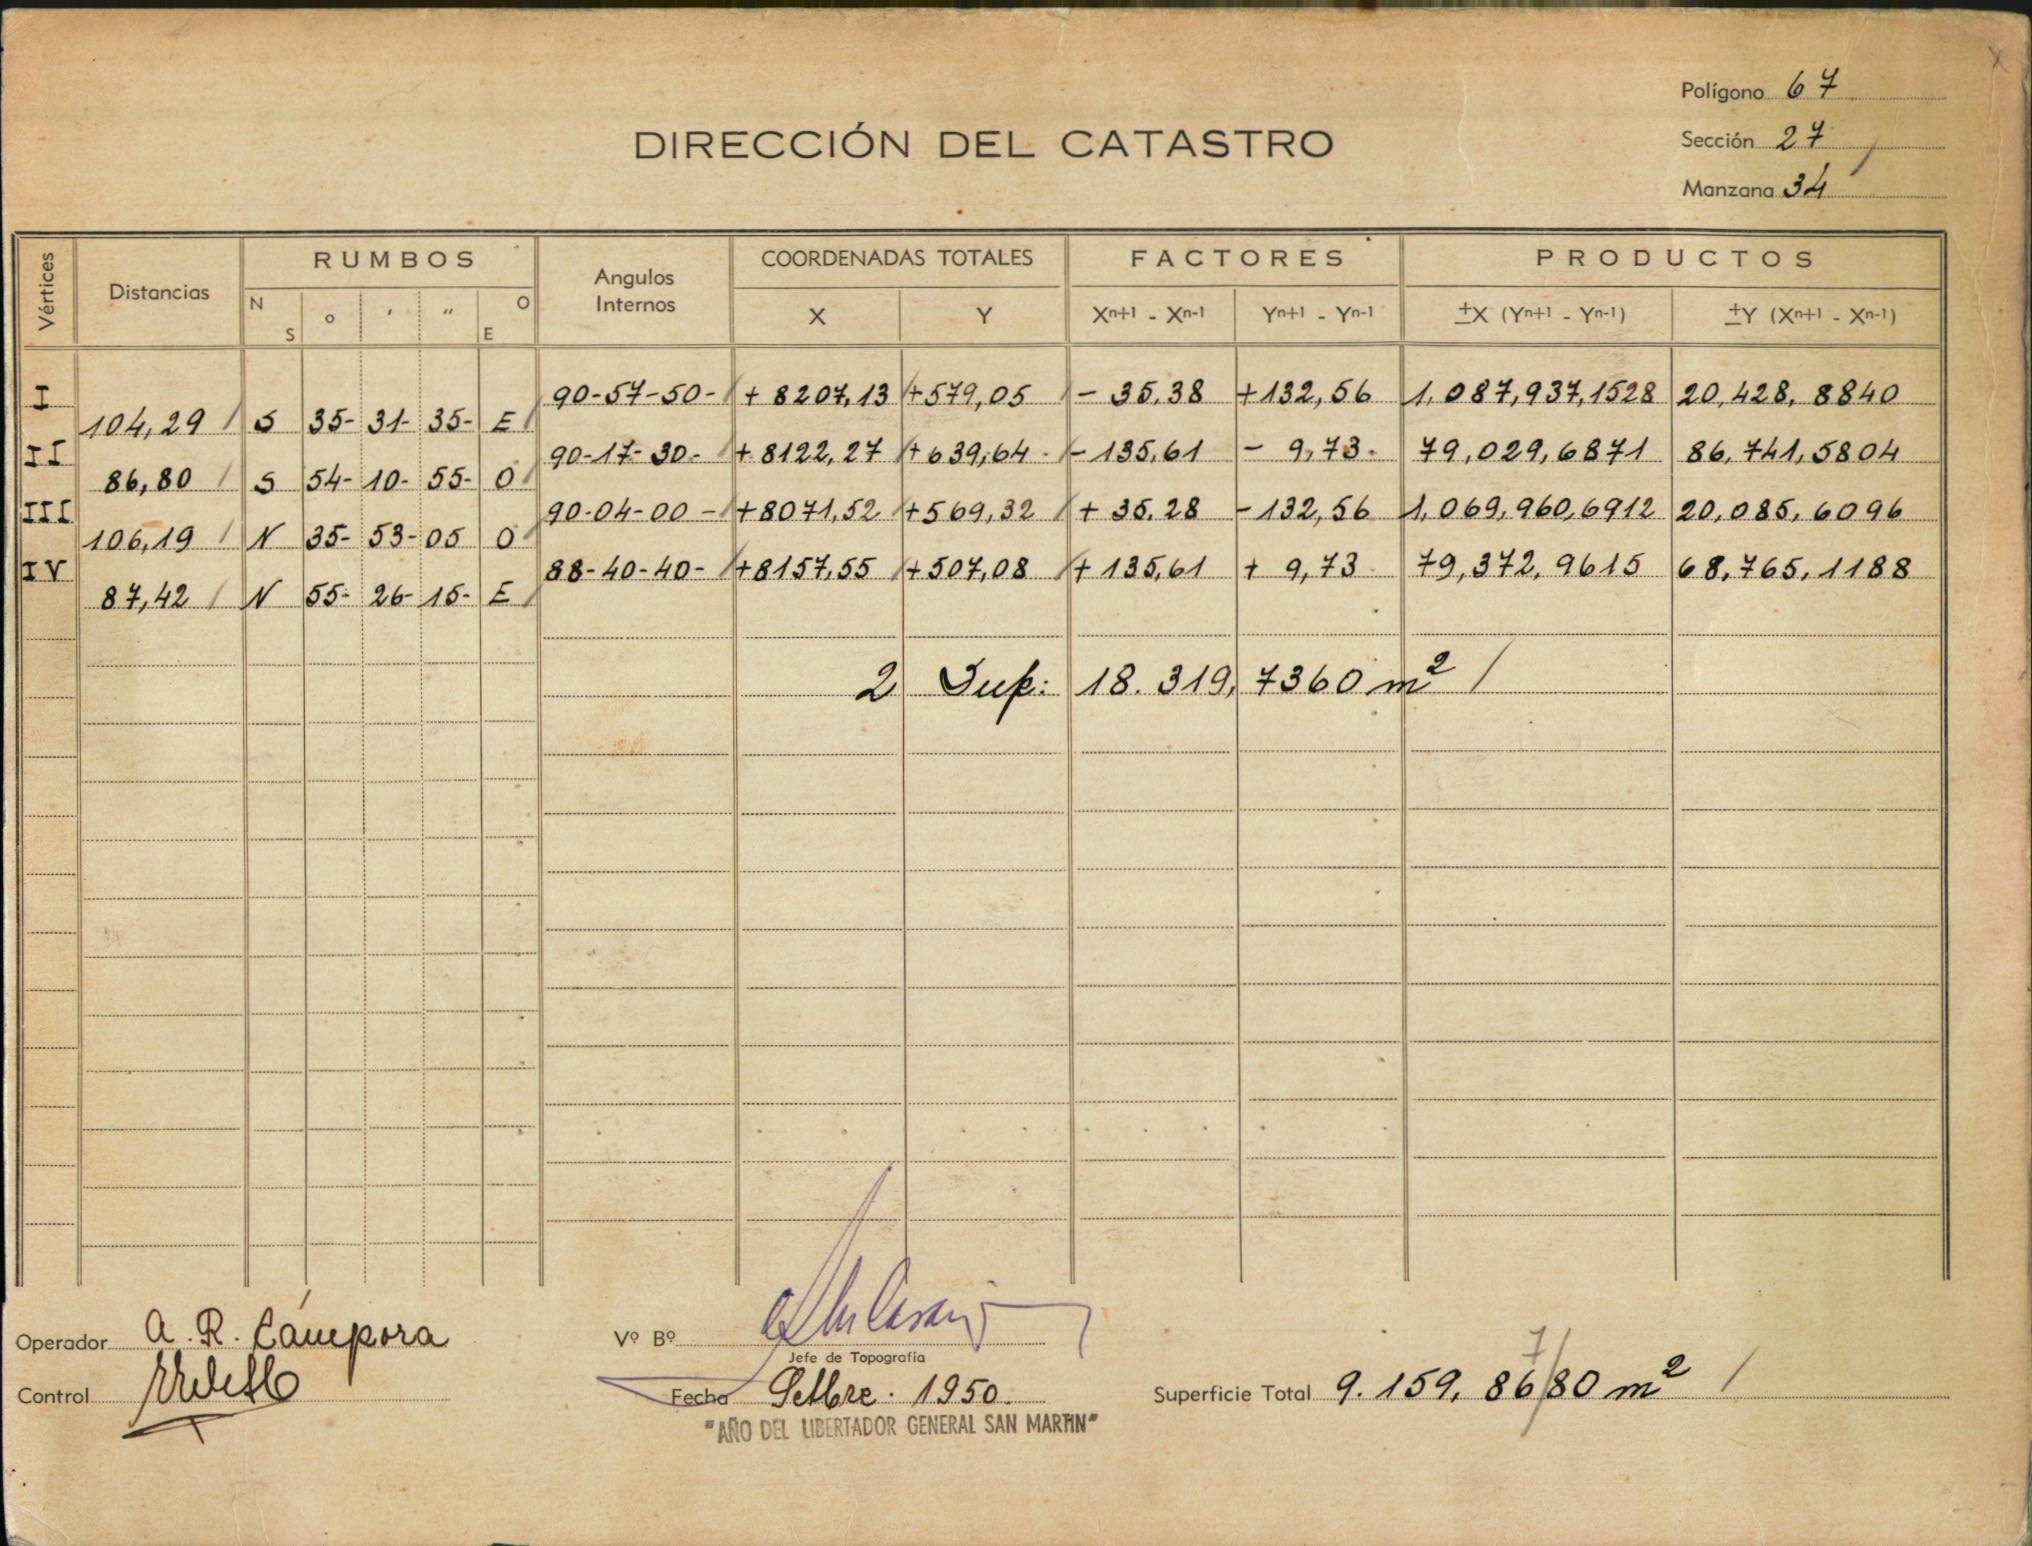 Polígono 67
DIRECCIÓN DEL CATASTRO
Sección 27
Manzana 34
Vértices Distancias RUMBOS Angulos Internos COORDENADAS TOTALES FACTORES PRODUCTOS
N S o ' " O E X Y Xn+1 - Xn-1 Yn+1 - Yn-1 ±X (Yn+1 - Yn-1) ±Y (Xn+1 - Xn-1)
I 90-57-50- + 8207,13 +579,05 - 35,38 +132,56 1,087,937,1528 20,428,8840
104,29 S 35- 31- 35- E
II 90-17-30- + 8122,27 +639,64 -135,61 - 9,73 79,029,6871 86,741,5804
86,80 S 54- 10- 55- O
III 90-04-00- +8071,52 +569,32 + 35,28 -132,56 1,069,960,6912 20,085,6096
106,19 N 35- 53- 05 O
IV 88-40-40- +8157,55 +507,08 + 135,61 + 9,73 79,372,9615 68,765,1188
87,42 N 55- 26- 15- E
2 Sup: 18.319,7360 m²
Operador A. R. Cámpora
Vº Bº
Jefe de Topografía
7
Control
Fecha Setbre. 1950.
Superficie Total 9.159,86/80 m²
"AÑO DEL LIBERTADOR GENERAL SAN MARTIN"